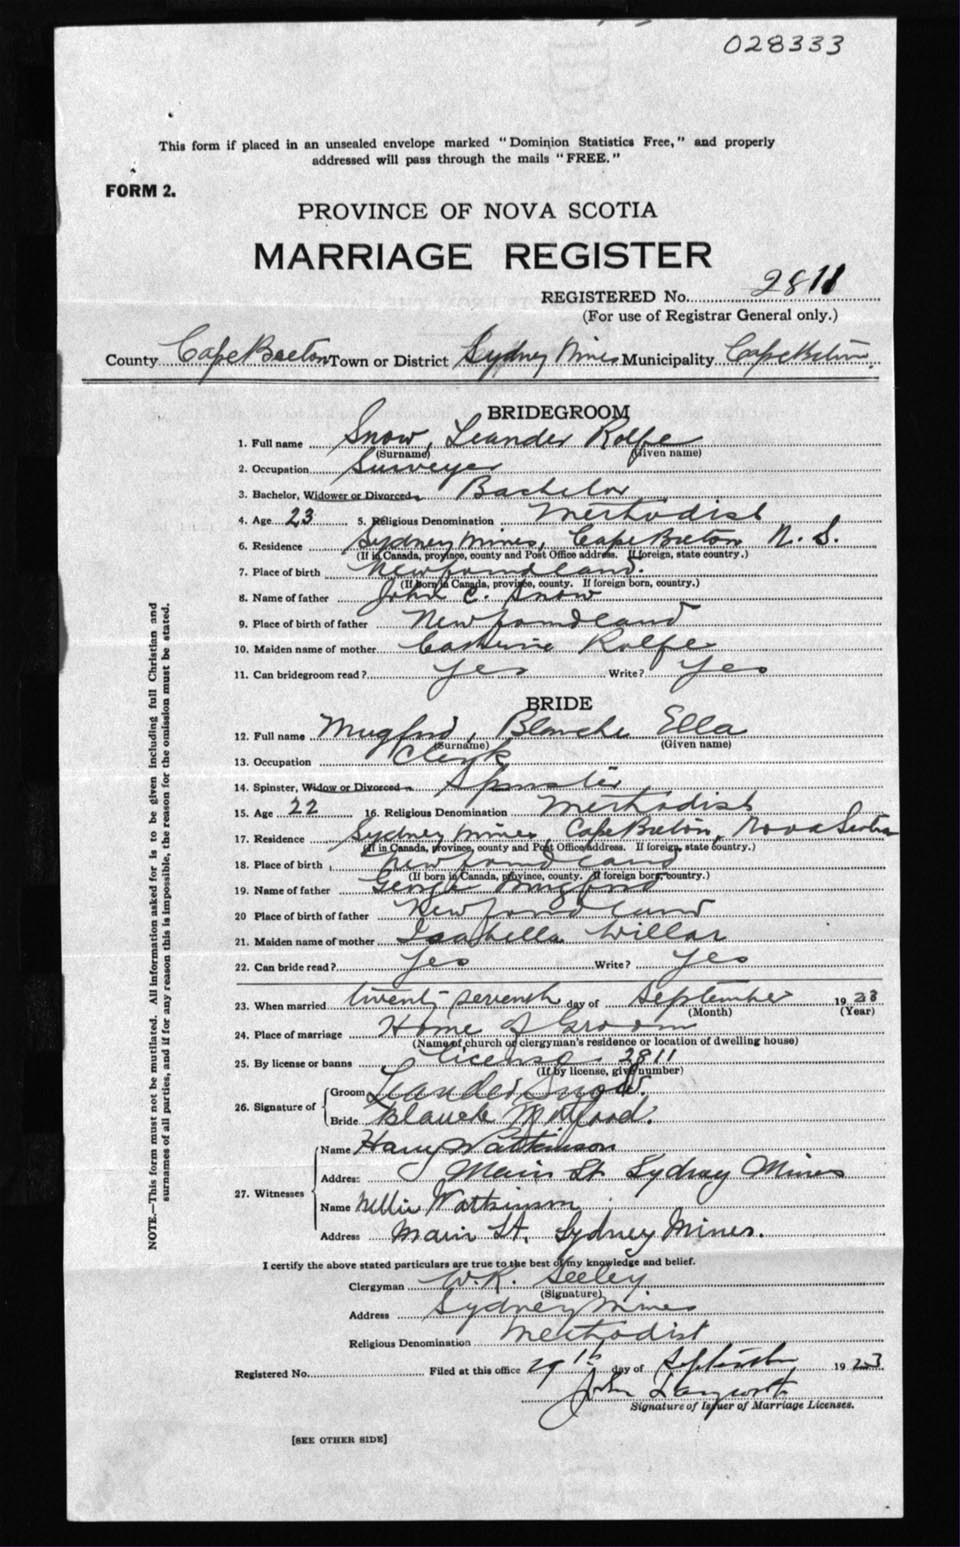 028333
This form if placed in an unsealed envelope marked "Dominion Statistics Free," and properly
addressed will pass through the mails "FREE."
FORM 2.
PROVINCE OF NOVA SCOTIA
MARRIAGE REGISTER
REGISTERED No. 2811
(For use of Registrar General only.)
County Cape Breton Town or District Sydney Mines Municipality Cape Breton
BRIDEGROOM
1. Full name Snow, Leander Rolfe
(Surname) (Given name)
2. Occupation Surveyer
3. Bachelor, Widower or Divorced Bachelor
4. Age 23 5. Religious Denomination Methodist
6. Residence Sydney Mines, Cape Breton N. S.
(If in Canada, province, county and Post Office address. If foreign, state country.)
7. Place of birth Newfoundland.
(If Born in Canada, province, county. If foreign born, country.)
8. Name of father John C. Snow
9. Place of birth of father Newfoundland
10. Maiden name of mother Catherine Rolfe
11. Can bridegroom read? Yes Write? Yes
BRIDE
12. Full name Mugford, Blanche Ella
(Surname) (Given name)
13. Occupation Clerk
14. Spinster, Widow or Divorced Spinster
15. Age 22 16. Religious Denomination Methodist
17. Residence Sydney Mines, Cape Breton, Nova Scotia
(If in Canada, province, county and Post Office address. If foreign, state country.)
18. Place of birth Newfoundland
(If born in Canada, province, county. If foreign born, country.)
19. Name of father George Mugford
20 Place of birth of father Newfoundland
21. Maiden name of mother Isabella Willar
22. Can bride read? Yes Write? Yes
23. When married twenty seventh day of September 1923
(Month) (Year)
24. Place of marriage Home of Groom
(Name of church or clergyman's residence or location of dwelling house)
25. By license or banns License 2811
(If by license, give number)
26. Signature of Groom Leander Snow.
Bride Blanche
27. Witnesses Name Harry Watkinson
Address Main St Sydney Mines
Name Nellie Watkinson
Address Main St. Sydney Mines.
I certify the above stated particulars are true to the best of my knowledge and belief.
Clergyman W. R. Seeley
(Signature)
Address Sydney Mines
Religious Denomination Methodist
Registered No. Filed at this office 29th day of September 1923
John
Signature of Issuer of Marriage Licenses.
[SEE OTHER SIDE]
NOTE.—This form must not be mutilated. All information asked for is to be given including full Christian and
surnames of all parties, and if for any reason this is impossible, the reason for the omission must be stated.